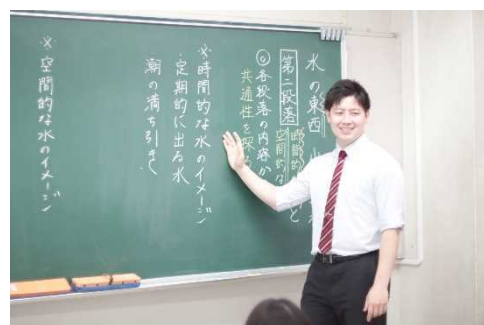 水の東西 山
第二段落
時間的
空間的な と
◎各段落の内容か
共通性を探
※時間的な水のイメージ
定期的に出る水
潮の満ち引き
※空間的な水のイメージ